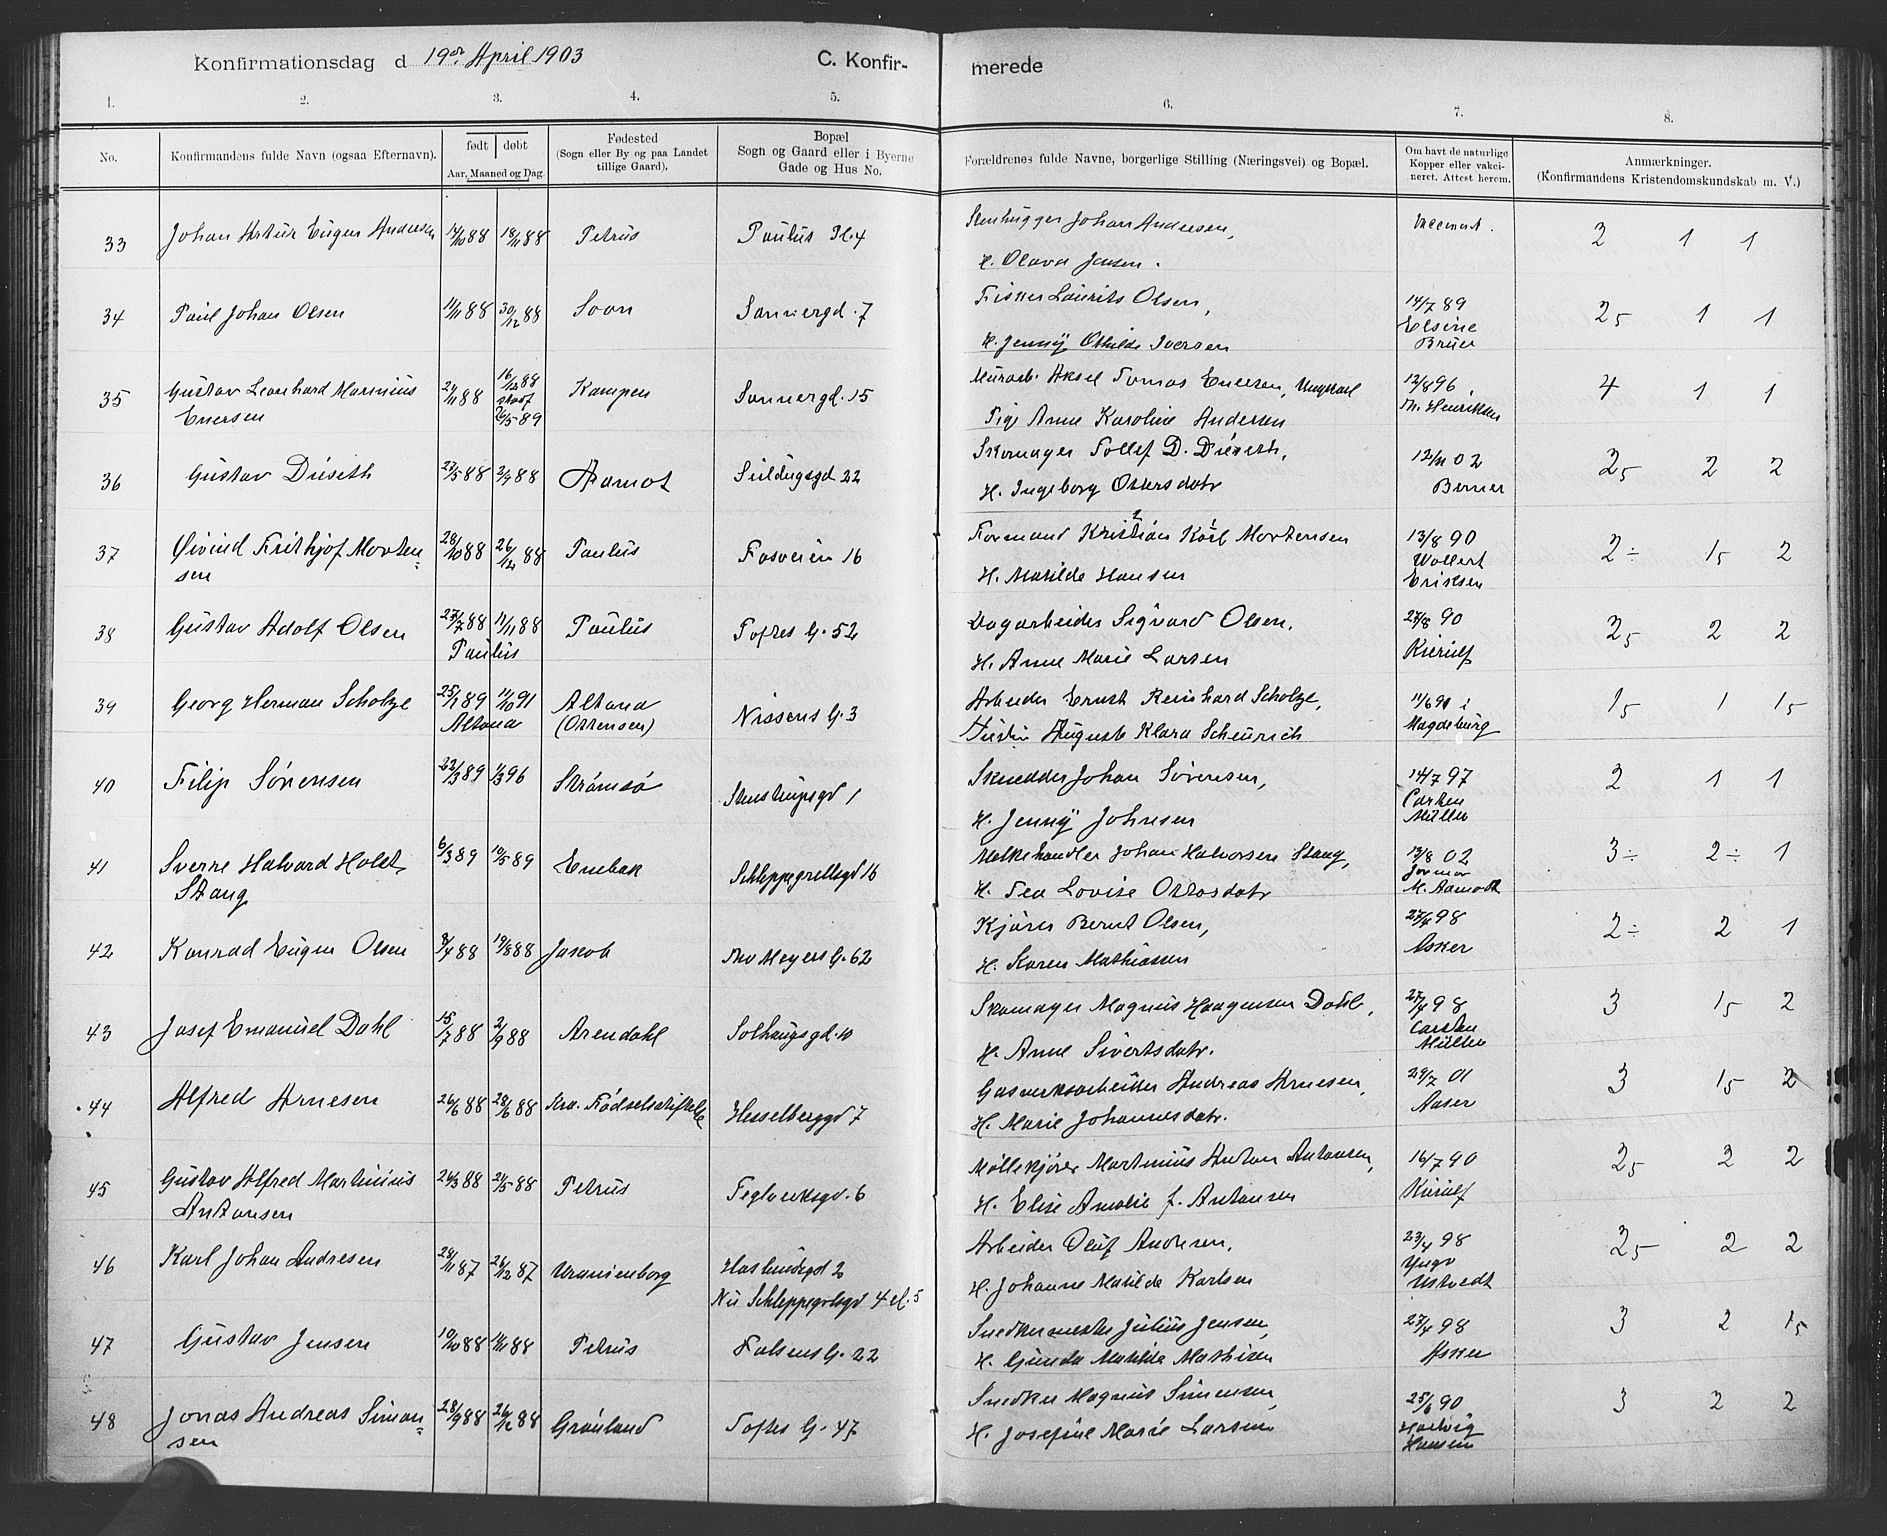 Konfirmationsdag d 19de April 1903 C. Konfir- merede
1. 2. 3. 4. 5. 6. 7. 8.
No. Konfirmandens fulde Navn (ogsaa Efternavn). født døbt Aar, Maaned og Dag. Fødested (Sogn eller By og paa Landet tillige Gaard). Bopæl Sogn og Gaard eller i Byerne Gade og Hus No. Forældrenes fulde Navne, borgerlige Stilling (Næringsvei) og Bopæl. Om havt de naturlige Kopper eller vakcineret. Attest herom. Anmærkninger. (Konfirmandens Kristendomskundskab m. V.)
33 Johan Artur Eugen Andersen 14/10 88 18/11 88 Petrus Paulus Pl. 4 Stenhugger Johan Andersen, 2 1 1
H. Olava Jensen.
34 Paul Johan Olsen 11/11 88 30/12 88 Sovn Sannergd. 7 Fisker Laurits Olsen, 14/7 89 25 1 1
H. Jenny Othilde Iversen Elsine Bruer
35 Gustav Leonhard Marinius 24/11 88 16/12 88 Kampen Sannergd. 15 Murarb. Aksel Tomas Enersen, Ungkarl 12/8 96 4 1 1
Enersen stadf 26/5 89 Pige Anne Karoline Andersen Th. Henriksen
36 Gustav Diseth 23/5 88 2/9 88 Aamot 22 Skomager Tollef D. Diseth, 12/11 02 25 2 2
H. Ingeborg Ottersdatr Berner
37 Øivind Frithjof Morten= 28/10 88 26/12 88 Paulus Fosveien 16 Formand Kristian Karl Mortensen 13/8 90 2÷ 15 2
sen H. Matilde Hansen Wollert Eriksen
38 Gustav Adolf Olsen 27/7 88 11/11 88 Paulus Toftes G. 52 Dagarbeider Sigvard Olsen, 27/8 90 25 2 2
Paulus H. Anne Marie Larsen Kierulf
39 Georg Herman Scholze 25/1 89 11/10 91 Altona Nissens G. 3 Arbeider Ernst Reinhard Scholze, 11/6 90 i 15 1 15
Altona (Ottensen) Hustru Auguste Klara Scheurich Magdeburg
40 Filip Sørensen 22/3 89 1/3 96 Strømsø Stenstrupsgd 1 Skrædder Johan Sørensen, 14/7 97 2 1 1
H. Jenny Johnsen Carsten Müller
41 Sverre Halvard Holst 6/3 89 10/5 89 Enebak Schleppegrellsgd 16 Melkehandler Johan Halvorsen Stang, 13/8 02 3÷ 2÷ 1
Stang H. Tea Lovise Ottosdatr M. Aamodt
42 Konrad Eugen Olsen 8/4 88 19/8 88 Jacob Thv Meyers G. 62 Kjører Bernt Olsen, 27/4 98 2÷ 2 1
H. Karen Mathiassen Asker
43 Josef Emanuel Dahl 15/7 88 2/9 88 Arendahl Solhaugsgd. 10 Skomager Magnus Haagensen Dahl, 27/4 98 3 15 2
H. Anne Sivertsdatr. Carsten Müller
44 Alfred Arnesen 26/6 88 28/6 88 Kra. Fødselsstiftelse Hesselberggd 7 Gasverksarbeider Andreas Arnesen, 29/7 01 3 15 2
H. Marie Johannesdatr. Aaser
45 Gustav Alfred Martinius 24/3 88 21/5 88 Petrus Teglverksgd. 6 Møllekjører Martinius Anton Antonsen, 16/7 90 25 2 2
Antonsen H. Elise Amalie f. Antonsen Kierulf
46 Karl Johan Andresen 28/11 87 26/12 87 Uranienborg Haslundsgd 2 Arbeider Oluf Andresen, 23/4 98 25 2 2
Nu Schleppegrelsgd 4 el. 5 H. Johanne Matilde Karlsen Yngv Ustvedt
47 Gustav Jensen 10/10 88 1/11 88 Petrus Falsens G. 22 Snedkermester Julius Jensen, 27/4 98 3 2 15
H. Gunda Matilde Mathisen Asker
48 Jonas Andreas Simon= 28/9 88 26/12 88 Grønland Toftes G. 47 Snedker Magnus Simensen, 25/6 90 3 2 2
sen H. Josefine Marie Larsen Hartvig Hansen